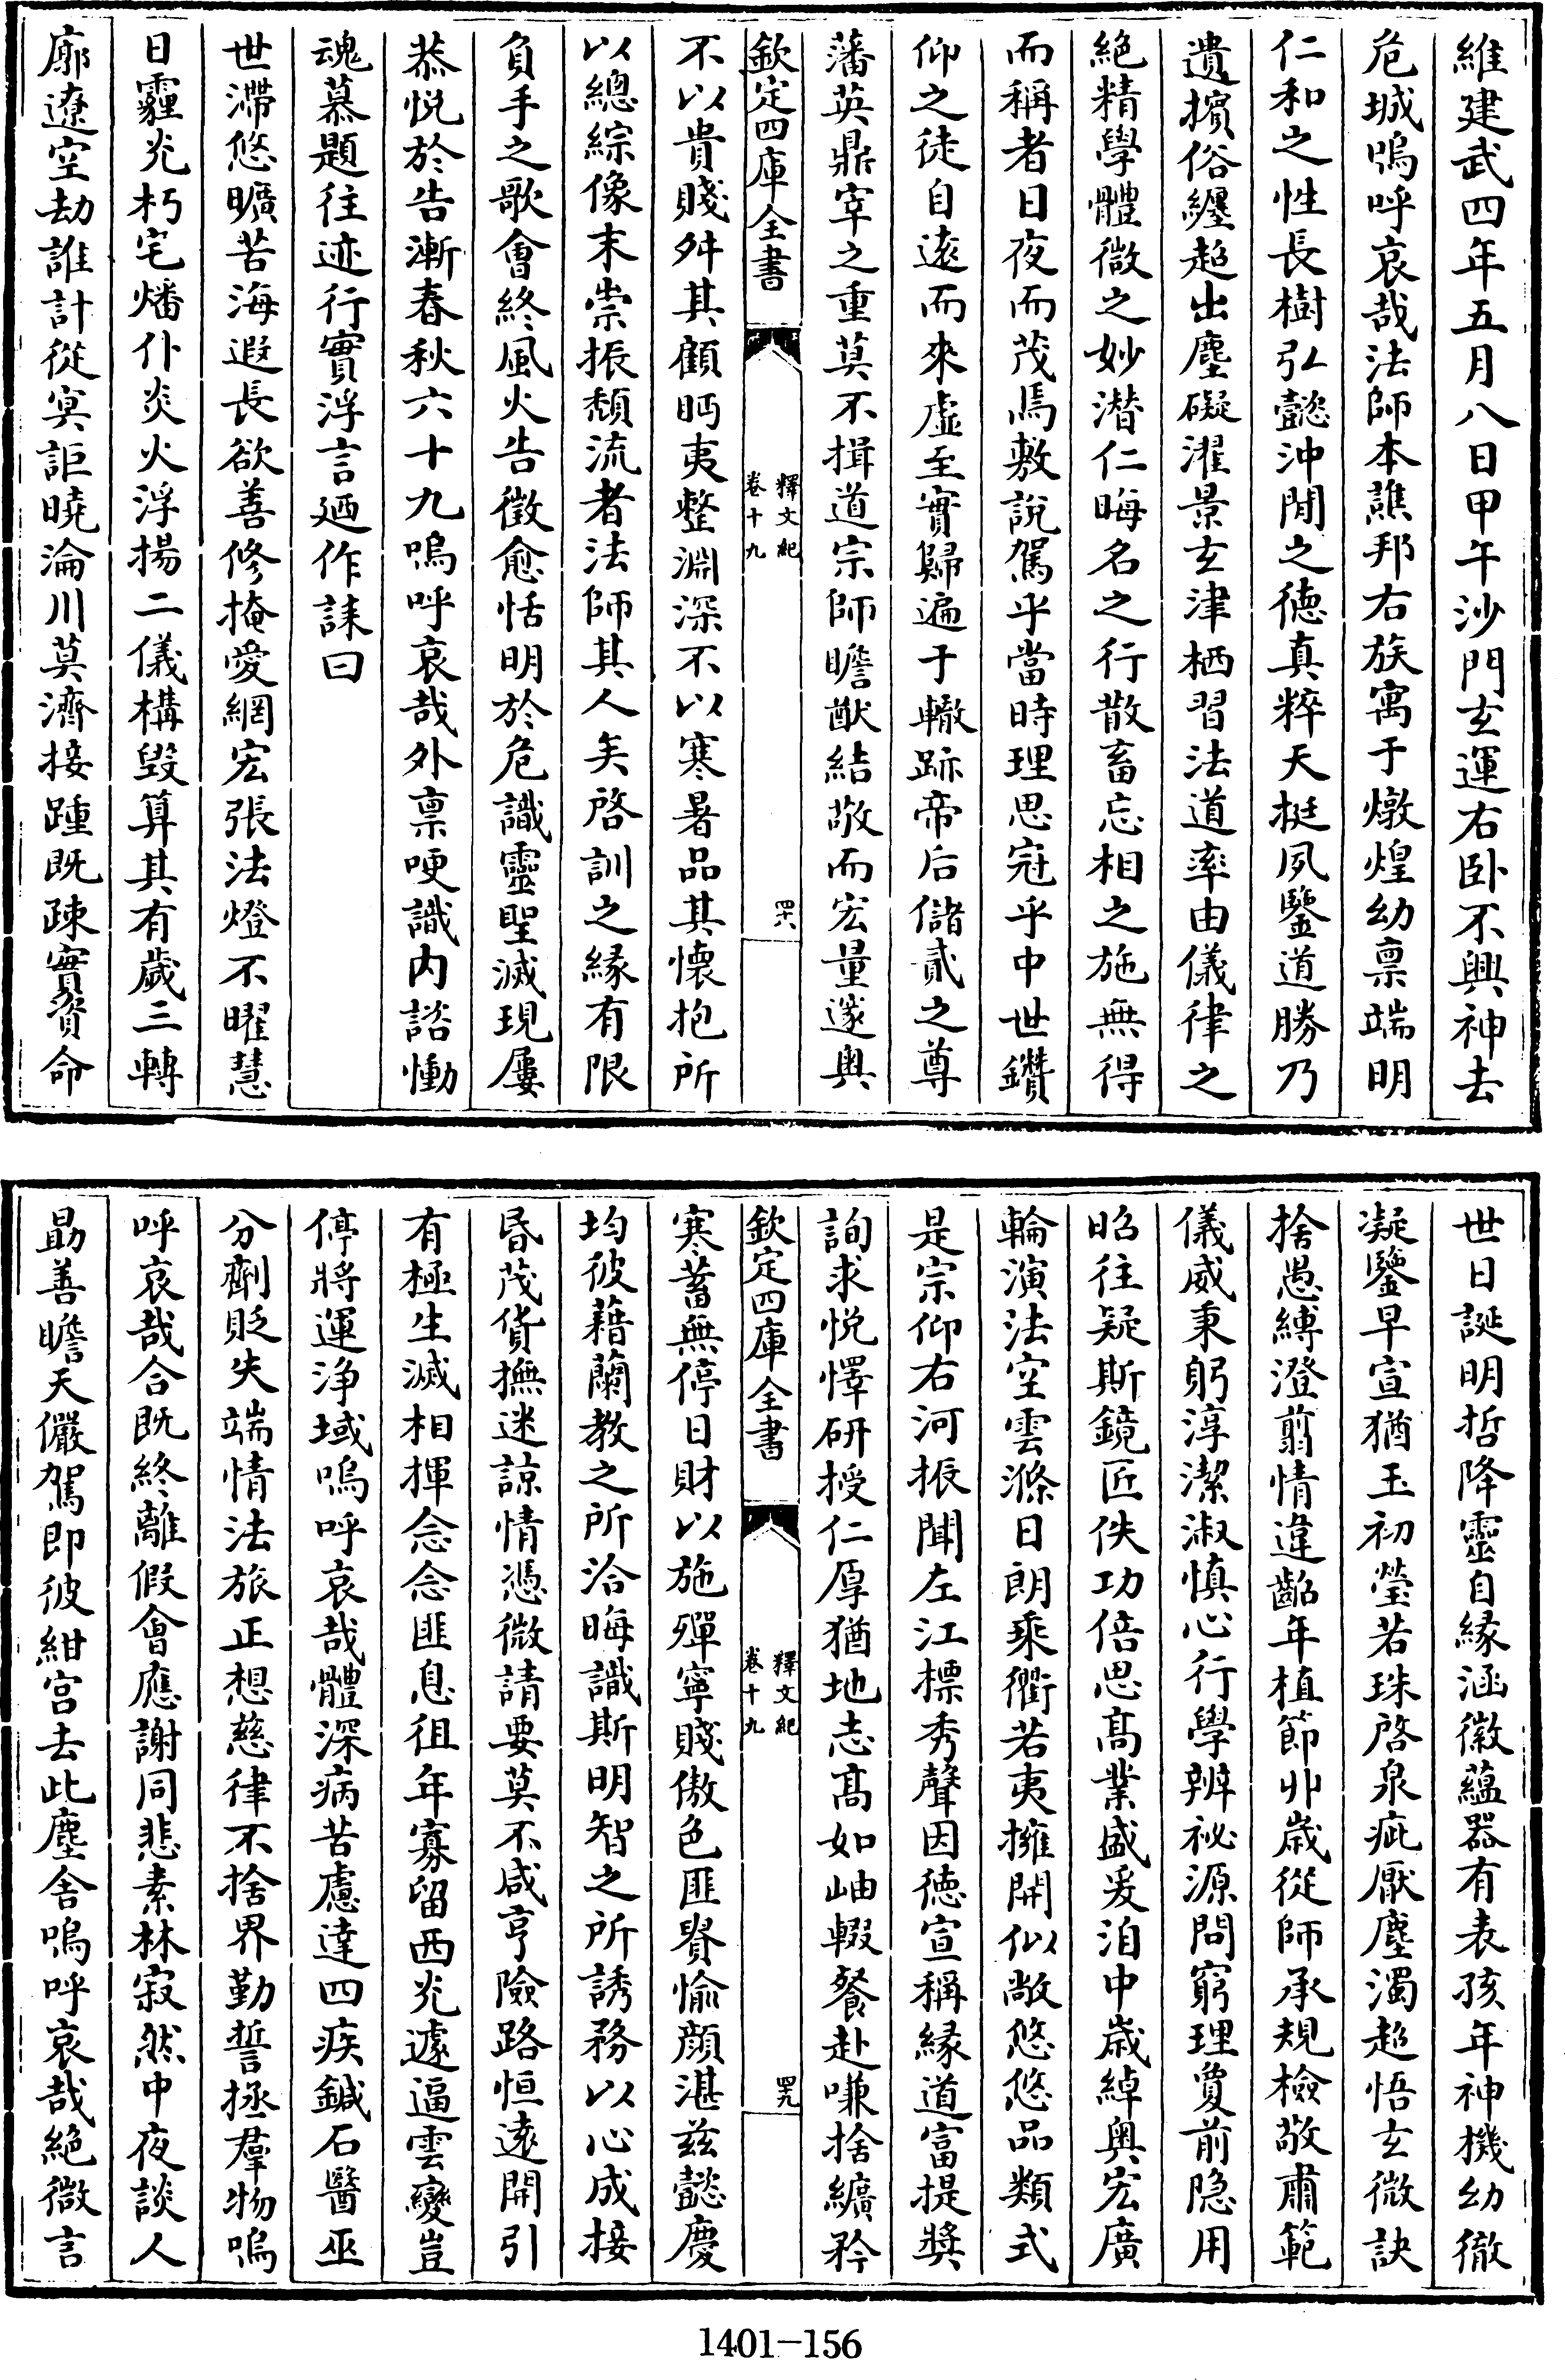 維建武四年五月八日甲午沙門玄運右卧不興神去
危城嗚呼哀哉法師本譙邦右族寓于燉煌幼禀端明
仁和之性長樹弘懿沖閒之德真粹天挺夙鑒道勝乃
遺擯俗纏超出塵礙濯景玄津栖習法道率由儀律之
絕精學體微之妙潛仁晦名之行散畜忘相之施無得
而稱者日夜而茂焉敷說駕乎當時理思冠乎中世鑽
仰之徒自遠而來虛至實歸遍于轍跡帝后儲貳之尊
藩英鼎宰之重莫不揖道宗師瞻猷結敬而宏量邃奥
欽定四庫全書
釋文紀
卷十九
四十八
不以貴賤舛其顧眄夷整淵深不以寒暑品其懷抱所
以總綜像末崇振頹流者法師其人矣啓訓之緣有限
負手之歌會終風火告徵愈恬明於危識靈聖滅現屢
恭悅於告漸春秋六十九嗚呼哀哉外禀哽識内諮慟
魂慕題往迹行實浮言廼作誄曰
世滯悠曠苦海遐長欲善修掩愛網宏張法燈不曜慧
日霾光朽宅燔仆炎火浮揚二儀構毀算其有歲三轉
廓遼空劫誰計從冥詎曉淪川莫濟接踵既疎實資命
世日誕明哲降靈自緣涵徽蘊器有表孩年神機幼徹
凝鑒早宣猶玉初瑩若珠啓泉疵厭塵濁超悟玄微訣
捨愚縛澄翦情違齠年植節丱歲從師承規檢敬肅範
儀威秉躬淳潔淑慎心行學辨祕源問窮理夐前隐用
昭往疑斯鏡匠佚功倍思高業盛爰洎中歲綽奥宏廣
輪演法空雲滌日朗乘衢若夷擁開似敞悠悠品類式
是宗仰右河振聞左江標秀聲因德宣稱緣道富提獎
詢求悅懌研授仁厚猶地志高如岫輟餐赴嗛捨纊矜
欽定四庫全書
釋文紀
卷十九
四十九
寒蓄無停日財以施殫寧賤傲色匪脅愉顔湛兹懿慶
均彼藉蘭教之所洽晦識斯明智之所誘務以心成接
昏茂貨撫迷諒情憑微請要莫不咸亨險路恒遠開引
有極生滅相揮念念匪息徂年寡留西光遽逼雲變豈
停將運浄域嗚呼哀哉體深病苦慮達四疾鍼石醫巫
分劑貶失端情法旅正想慈律不捨界勤誓拯羣物嗚
呼哀哉合既終離假會應謝同悲素林寂然中夜談人
勗善瞻天儼駕即彼紺宫去此塵舎嗚呼哀哉絕微言
1401-156